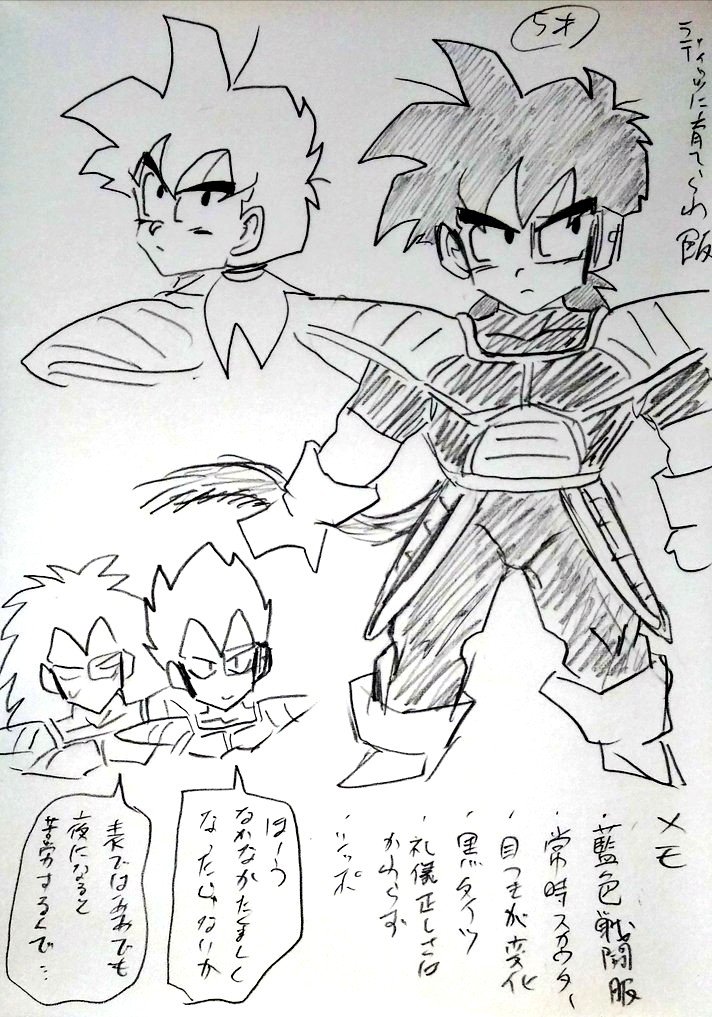 5才
ラディッツに育てられ飯
メモ
・藍色戦闘服
・常時スカウター
・目つきが変化
・黒タイツ
・礼儀正しさは
かわらず
・シッポ
ほーう
なかなかたくましく
なったじゃないか
表ではああでも
夜になると
苦労するんで…